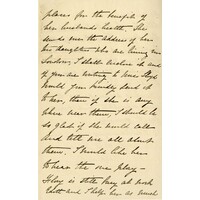 places for the benefit of
her husbands health. She
sends over the address of her
daughters who are living near
London, I shall enclose it and
if you are writing to Miss Lloyd
would you kindly send it
to her, then if she is any
where near them, I should be
so glad if she would call
and tell me all about
them. I would like her
to hear the one play —
is still busy at work
and I help her as much